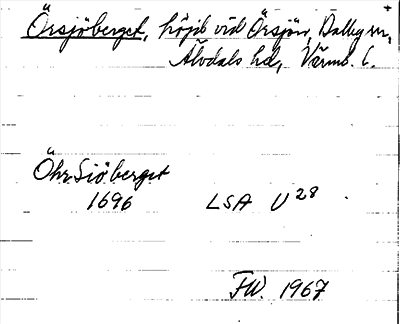 Örsjöberget, höjd vid Örsjön, Dalby sn,
Älvdals hd, Värml. l.
Öhr Siöberget
1696 LSA U28
FW. 1967